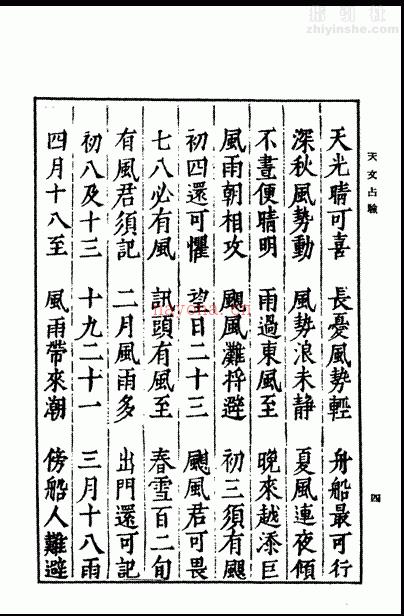 天文占驗
四
天光晴可喜　長憂風勢輕　舟船最可行
深秋風勢動　風勢浪未靜　夏風連夜傾
不晝便晴明　雨過東風至　晚來越添巨
風雨朝相攻　颶風灘將避　初三須有颶
初四還可懼　望日二十三　颶風君可畏
七八必有風　訊頭有風至　春雪百二旬
有風君須記　二月風雨多　出門還可記
初八及十三　十九二十一　三月十八雨
四月十八至　風雨帶來潮　傍船人難避
zhiyinshe.com
nayona.cn